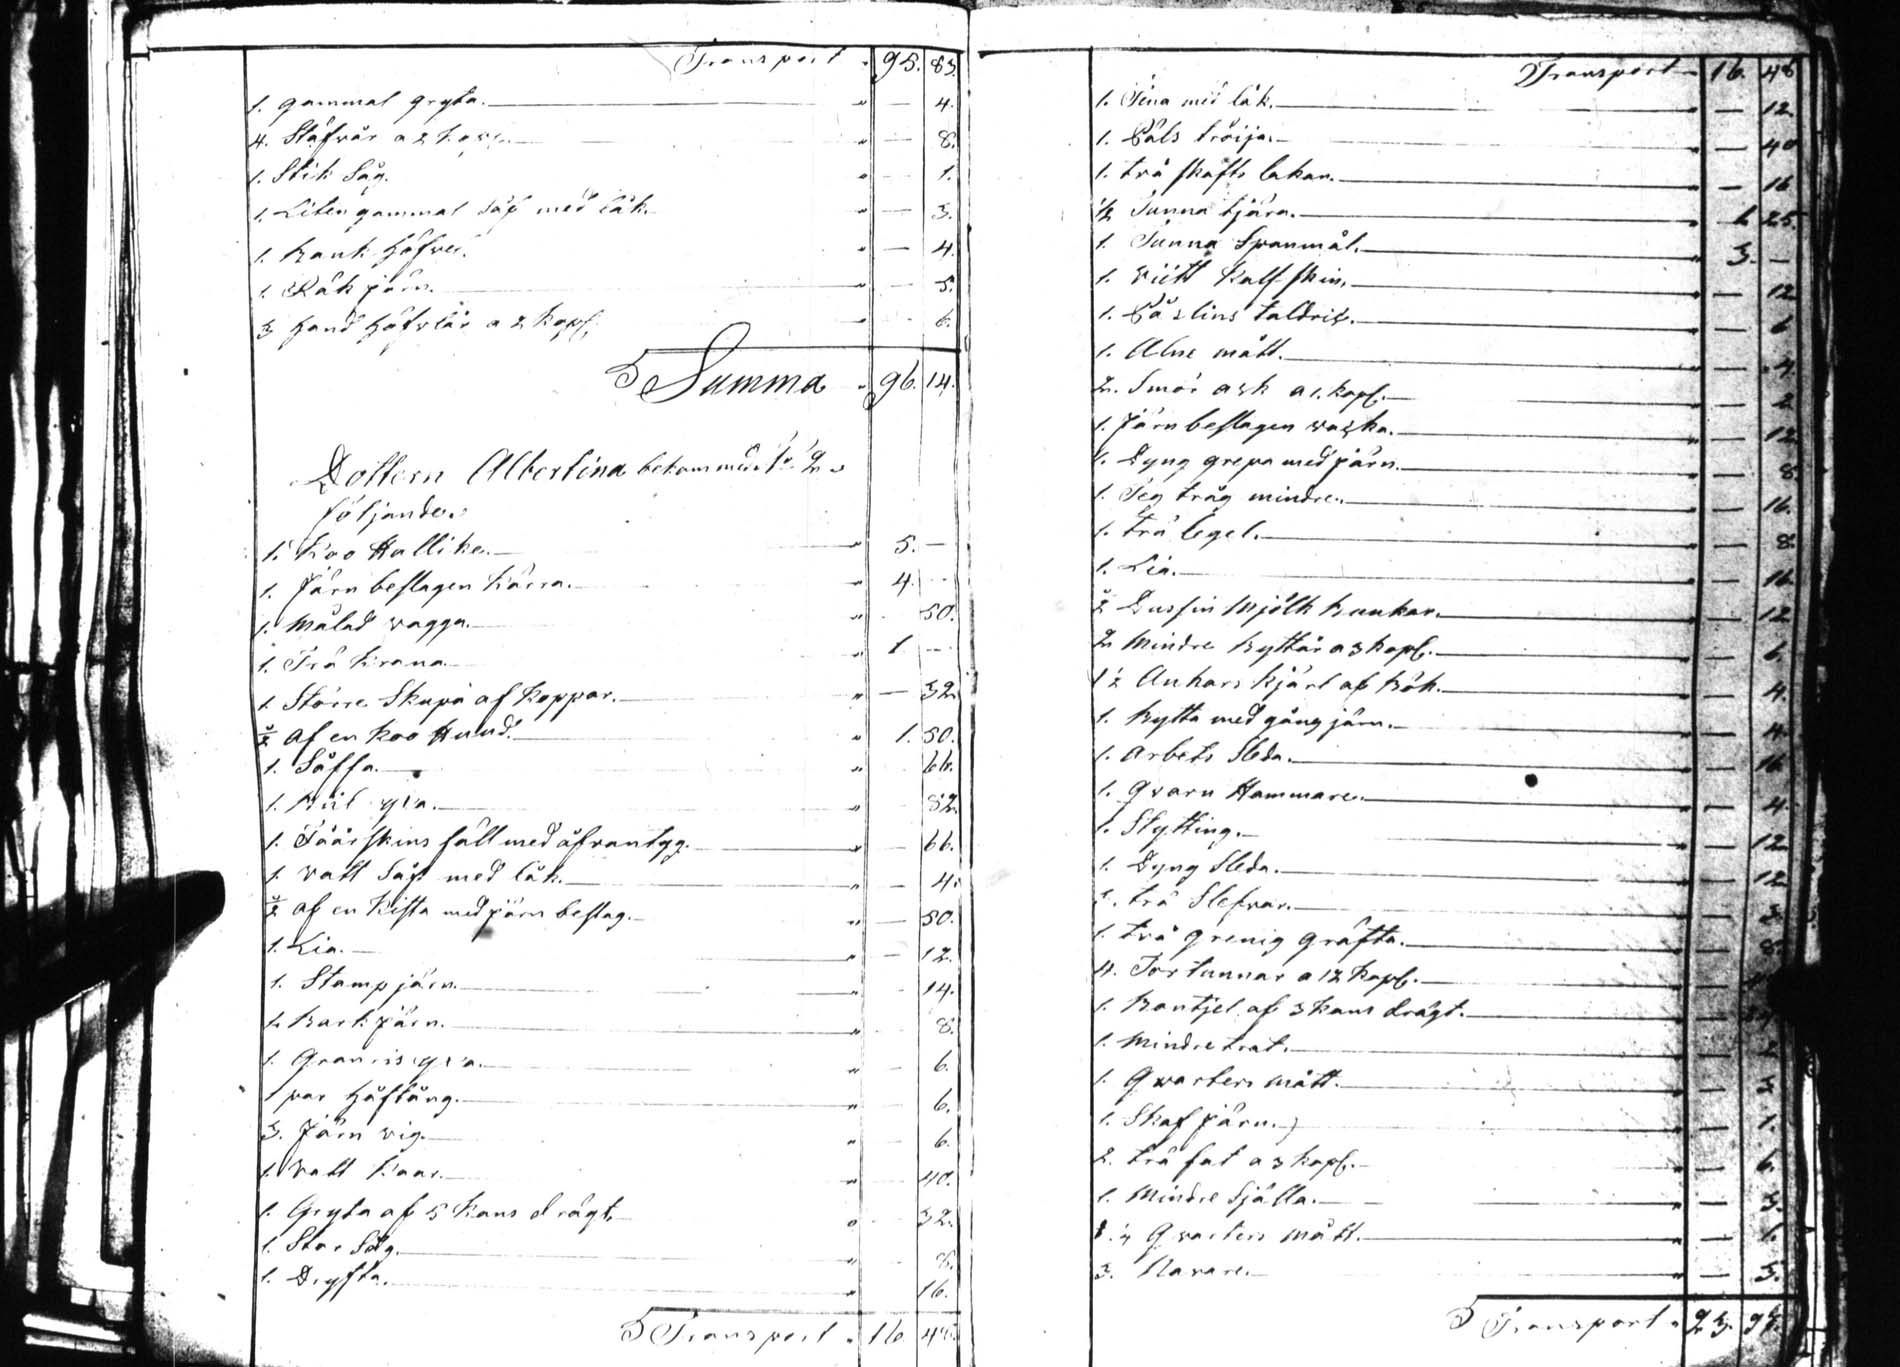 Transport " 95. 85.
1. gammal gryta. " — 4.
4. Stäfvår a 2 " — 8.
1. Stik Såg. " — 1.
1. Liten gammal Såp med låk. " — 3.
1. Bank Höfvel. " — 4.
1. Råk järn. " — 5.
3 Hand Höfvlår a 2 Kopf. " 6.
Summa " 96. 14.
Dottern Albertina bekommer
följande.
1. Koo Hallike. " 5. —
1. Järn beslagen Kärra. " 4. —
1. Målad vagga. " 50.
1. Trä Krana. " 1 —
1. Större Skupa af Koppar. " — 32
½ af en Koo Hund. " 1. 50.
1. Såffa. " 66.
1. " 82
1. Fåårskins fäll med åfvantyg. " — 66.
1. vatt Såp med låk. " — 4.
½ af en Kista med järn beslag. " — 50.
1. Lia. " — 12.
1. Stamp järn. " 14.
1. Bark järn. " 8.
1. Granris " 6.
1 par Håftång. " 6.
3. Järn vig. " 6.
1. vatt Kaar. " 40.
1. Gryta af 5 Kans drägt. " 32.
1. Stor Såg. " 8.
1. Dryfta. " 16.
Transport " 16 48.
Transport " 16. 48
1. Tina med låk. " — 12
1. Päls tröija. " — 40
1. två skafts lakan. " — 16
½ Tunna tjära. " 1 25.
1. Tunna Spanmål. " 3. —
1. Kalf skin. " — 12
1. Påslins taldrik. " — 6
1. Alne mått. " — 4.
2. Smör ask a 1. kopf. " — 2
1. Järn beslagen vaska. " — 12
1. Dyng grepa med järn. " — 8.
1. Deg tråg mindre. " — 16.
1. trä legel. " — 8.
1. Lia. " — 16.
½ Dussin Mjölk Bunkar. " — 12
2 Mindre Byttår a 3 kopf. " — 6.
1 ½ Ankars kjärl af Bök. " — 4.
1. Bytta med gång järn. " — 4.
1. arbets Sleda. " — 16
1. Qvarn Hammare. " — 4.
1. Stytting. " — 12
1. Dyng Sleda. " — 12
3. trä Slefvar. " — 3
1. två grenig gräfta. " — 8.
4. Tor tunnar a 12 Kopf. "
1. Kantjel af 3 kans drägt. "
1. Mindre trat. " — 2
1. Qvarters mått. " — 3
1. Skaf järn. " — 1.
2. trä fat a 3 kopf. " — 6.
1. Mindre Sjålla. " — 3.
1. ¼ Qvarters mått. " — 1.
3. Navare. " — 3.
Transport " 23.